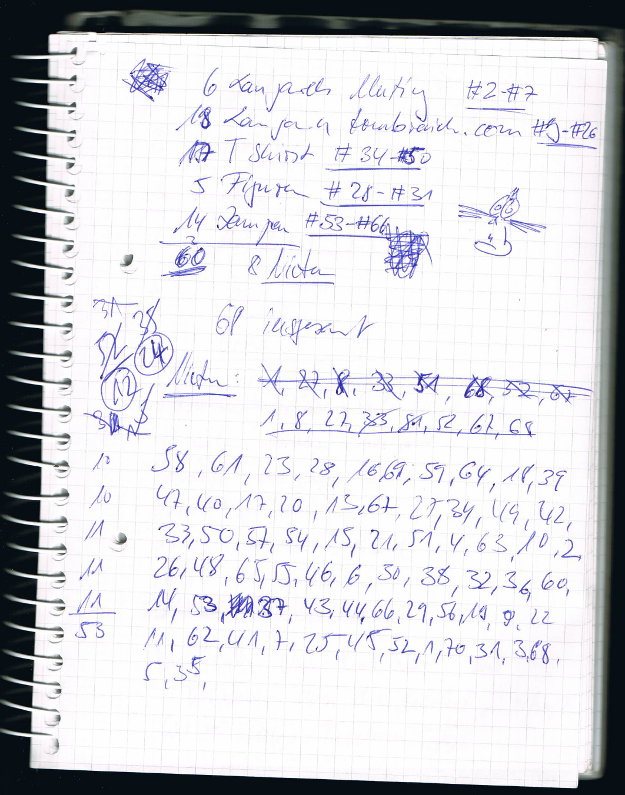 6 #2-#7
18 .com #9-#26
17 T Shirt #34-#50
5 Figuren #28-#31
14 #53-#66
60 8 Nieten
68 insgesamt
24
12
Nieten: 1, 27, 8, 33, 51, 68, 52, 67
1, 8, 27, 33, 51, 52, 67, 68
10 58, 61, 23, 28, 16, 69, 59, 64, 18, 39
10 47, 40, 17, 20, 13, 67, 27, 34, 49, 42,
11 33, 50, 57, 54, 15, 21, 51, 4, 63, 10, 2,
11 26, 48, 65, 55, 46, 6, 30, 38, 32, 36, 60,
11 14, 53, 37, 43, 44, 66, 29, 56, 19, 9, 22
53 11, 62, 41, 7, 25, 45, 52, 1, 70, 31, 3, 68,
5, 35,